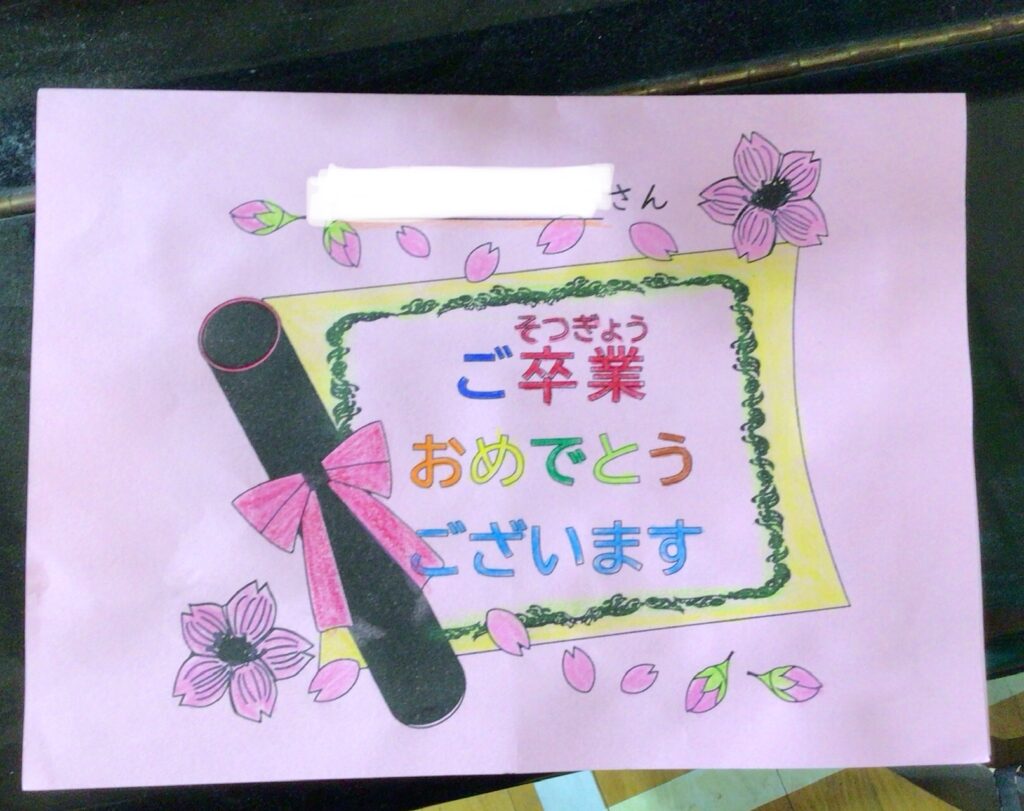 さん
そつぎょう
ご卒業
おめでとう
ございます